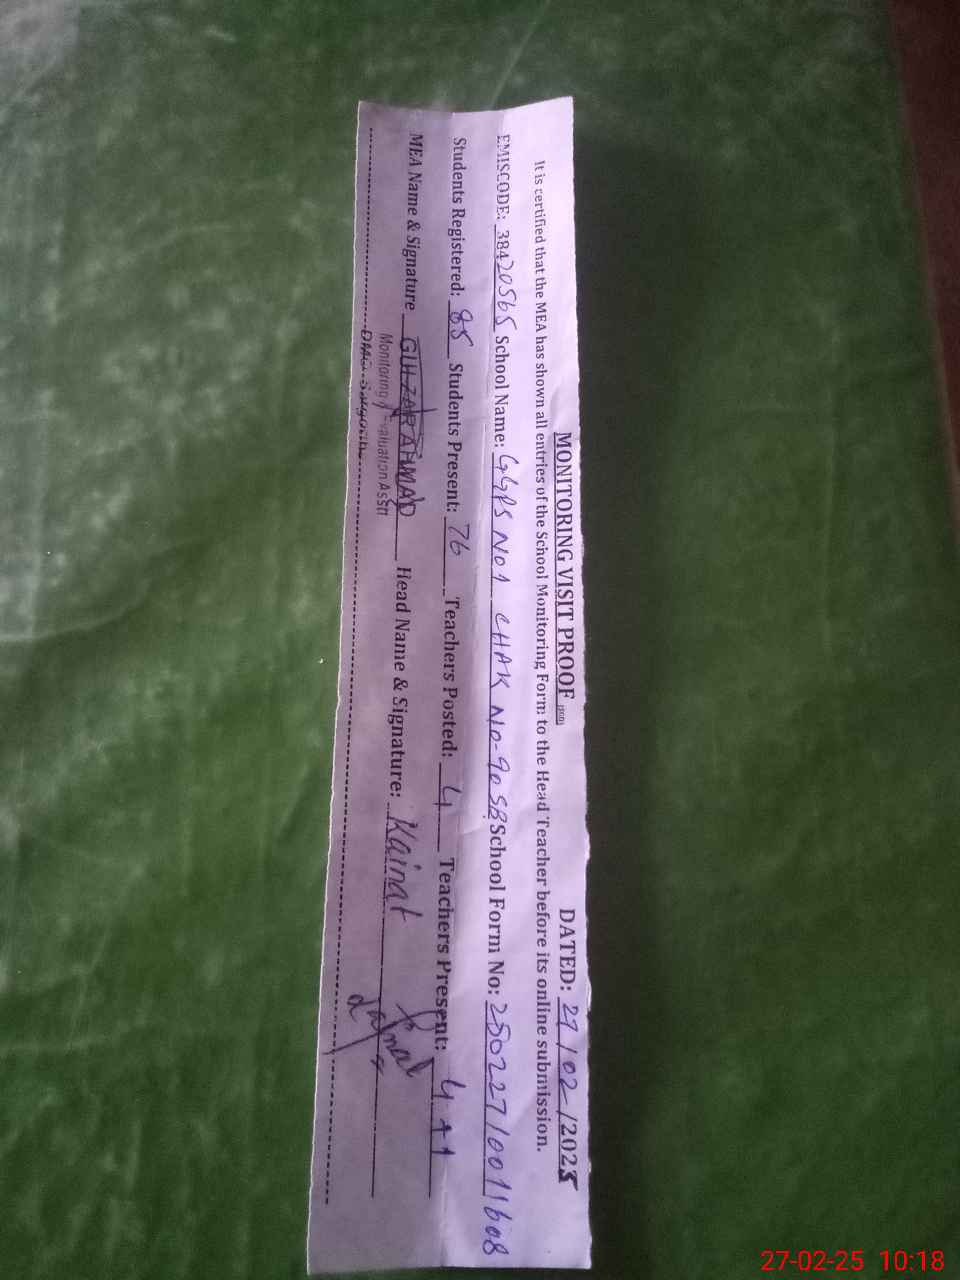 MONITORING VISIT PROOF DATED: 27/02/2025
It is certified that the MEA has shown all entries of the School Monitoring Form to the Head Teacher before its online submission.
EMISCODE: 38420565 School Name: GGPS No1 CHAK No-90 SB School Form No: 25022710011608
Students Registered: 85 Students Present: 76 Teachers Posted: 4 Teachers Present: 4
MEA Name & Signature GULZAR AHMAD Head Name & Signature: Kainat
Monitoring & Evaluation Asstt
27-02-25 10:18